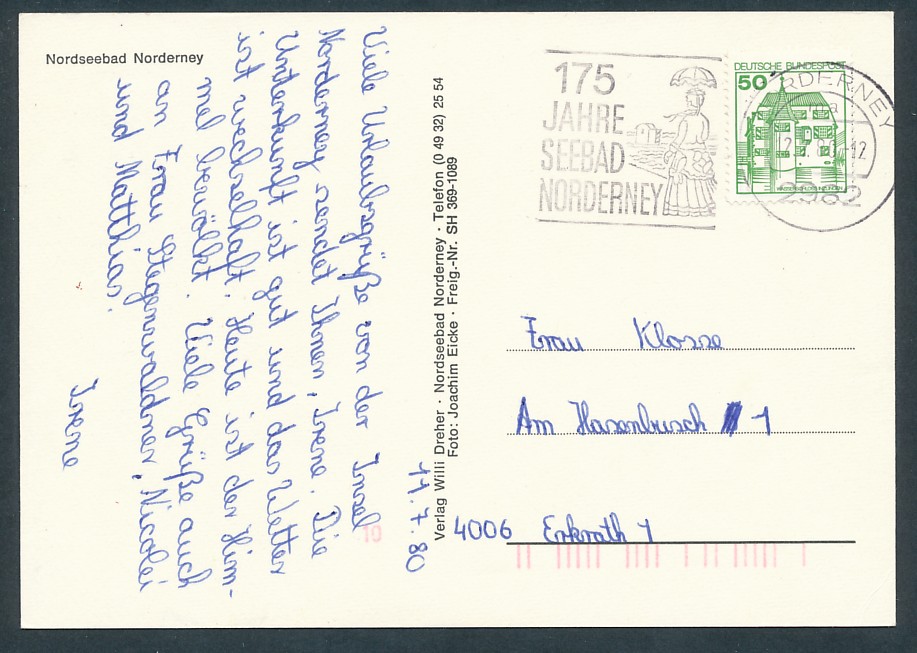 Nordseebad Norderney
11.7.80
Viele Urlaubsgrüße von der Insel
Norderney sendet Ihnen, Irene. Die
Unterkunft ist gut und das Wetter
ist wechselhaft. Heute ist der Him-
mel bewölkt. Viele Grüße auch
an Frau Stegenwaldner, Nicolei
und Matthias.
Irene
Verlag Willi Dreher · Nordseebad Norderney · Telefon (0 49 32) 25 54
Foto: Joachim Eicke · Freig.-Nr. SH 369-1089
175
JAHRE
SEEBAD
NORDERNEY
DEUTSCHE BUNDESPOST
50
WASSERSCHLOSS INZLINGEN
NORDERNEY
2982
Frau Klosse
Am Hasenbusch 1
4006 Erkrath 1
10